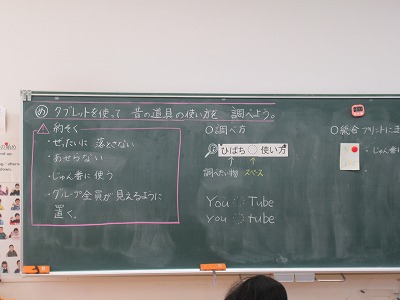 め タブレットを使って 昔の道具の使い方を 調べよう。
約そく
・ぜったいに 落とさない
・あせらない
・じゅん番に使う
・グループ全員が見えるように
置く。
○調べ方
ひばち 使い方
調べたい物 スペース
You Tube
you tube
○総合 プリントに
・じゅん番に